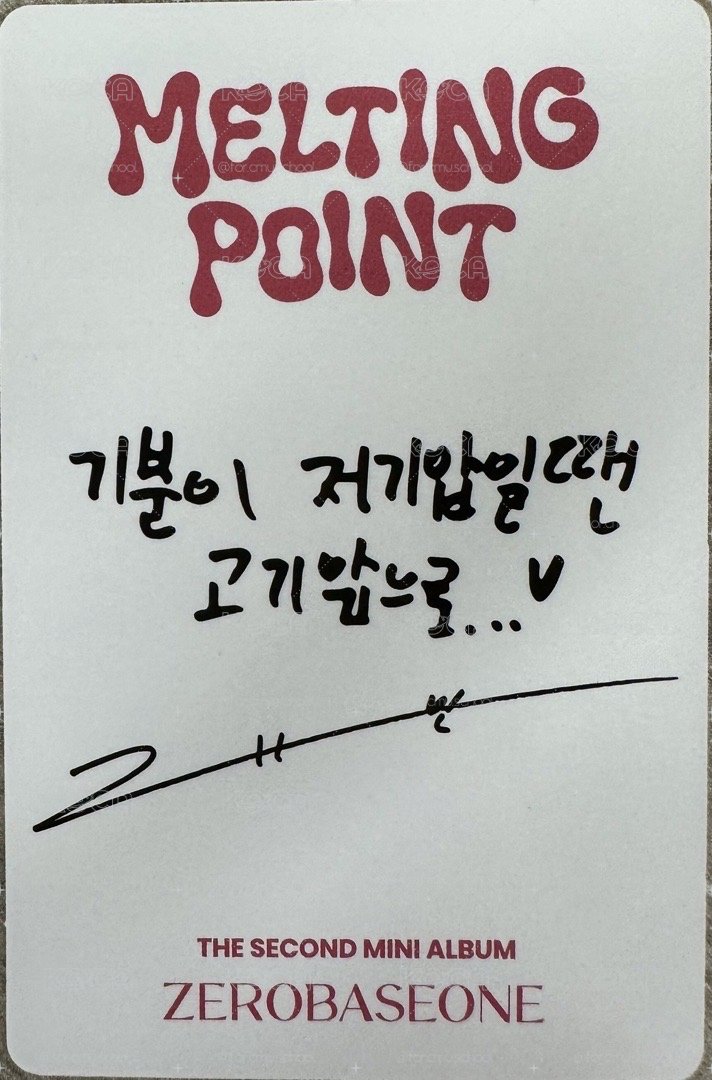 MELTING
POINT
기분이 저기압일땐
고기앞으로...♥
THE SECOND MINI ALBUM
ZEROBASEONE